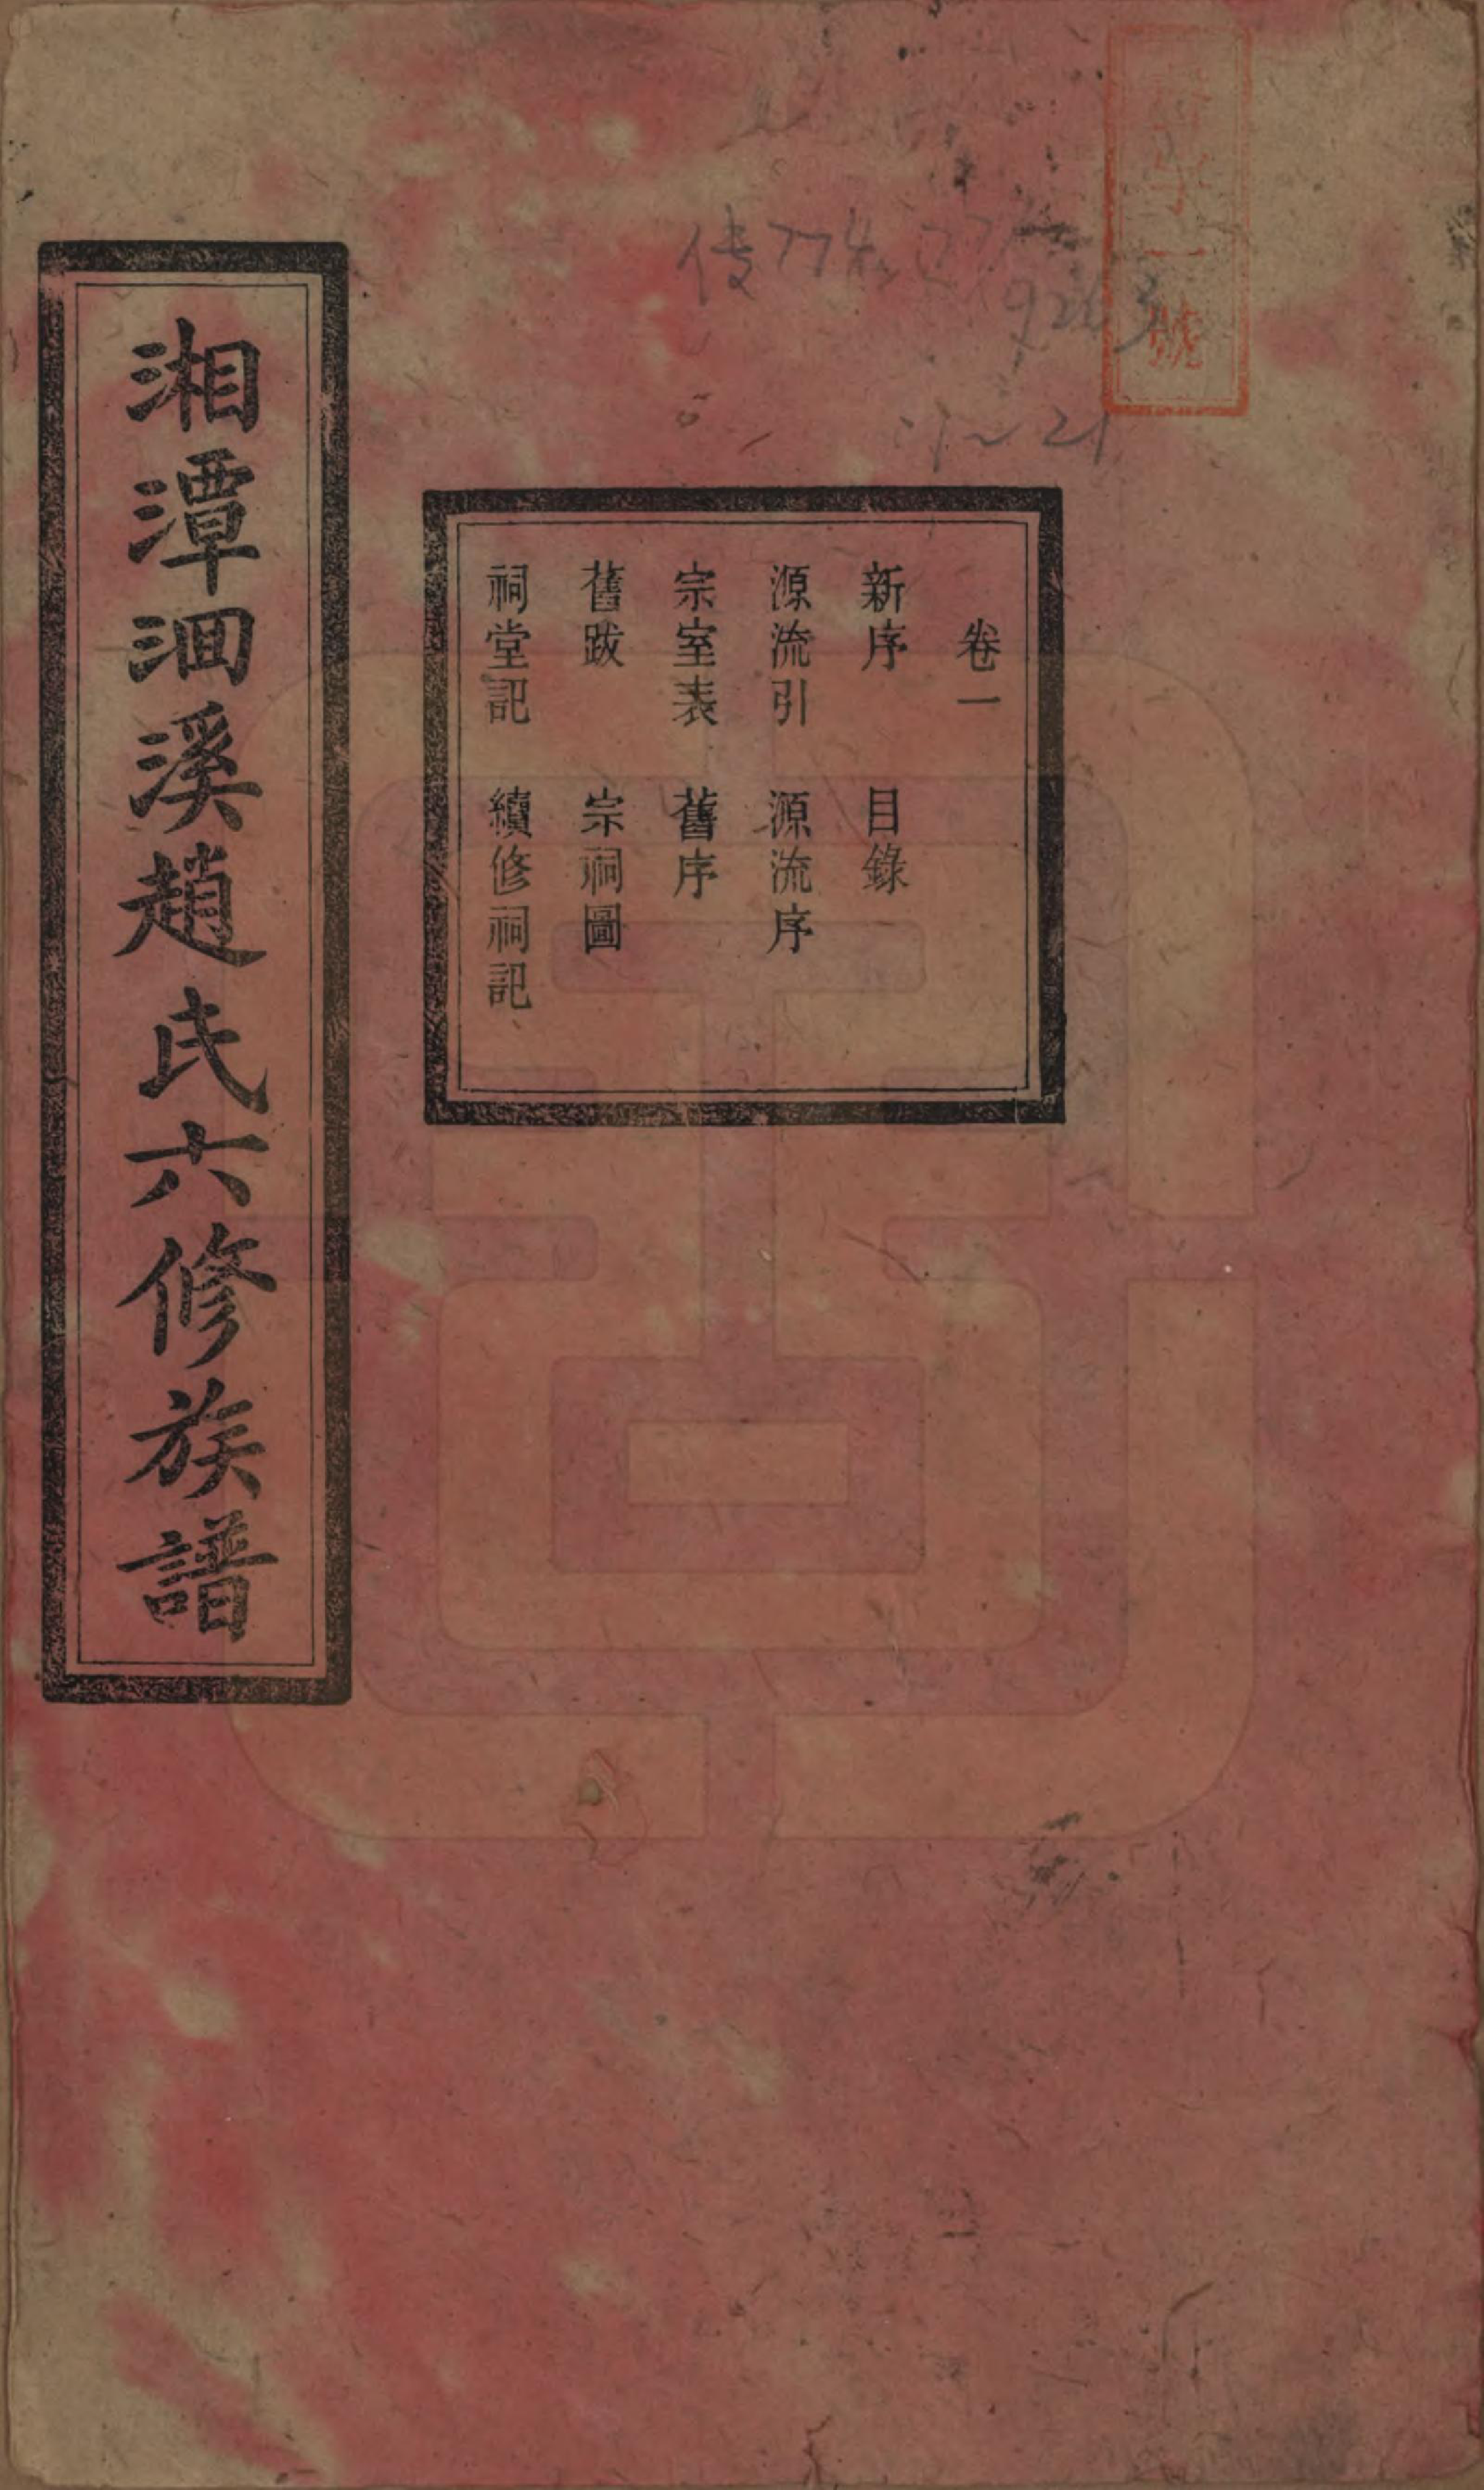 卷一
新序　目錄
源流引　源流序
宗室表　舊序
舊跋　宗祠圖
祠堂記　續修祠記
湘潭泗溪趙氏六修族譜
字一號
传774
9263
21